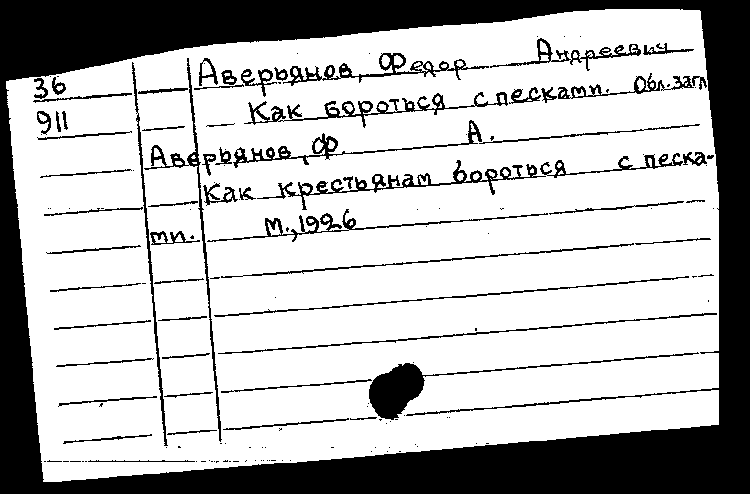 36 Аверьянов, Федор Андреевич
911 Как бороться с песками. Обл. загл.
Аверьянов, Ф. А.
Как крестьянам бороться с песка-
ми. М., 1926